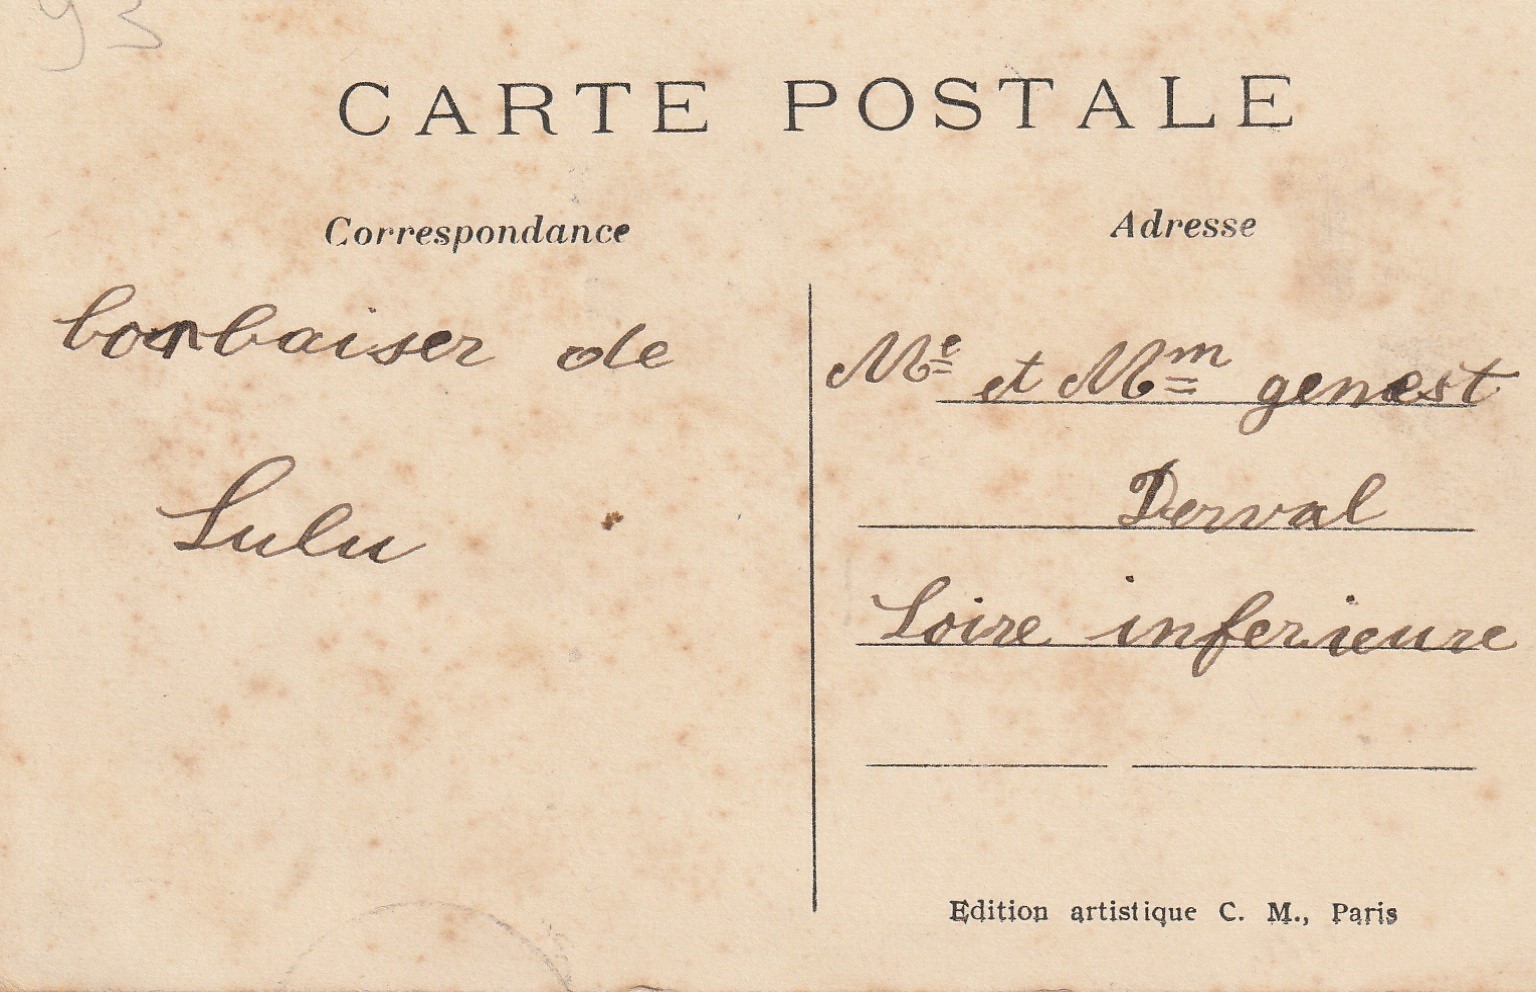 93
CARTE POSTALE
Correspondance
bonbaiser de
Lulu
Adresse
Me et Mm genest
Derval
Loire inferieure
Edition artistique C. M., Paris